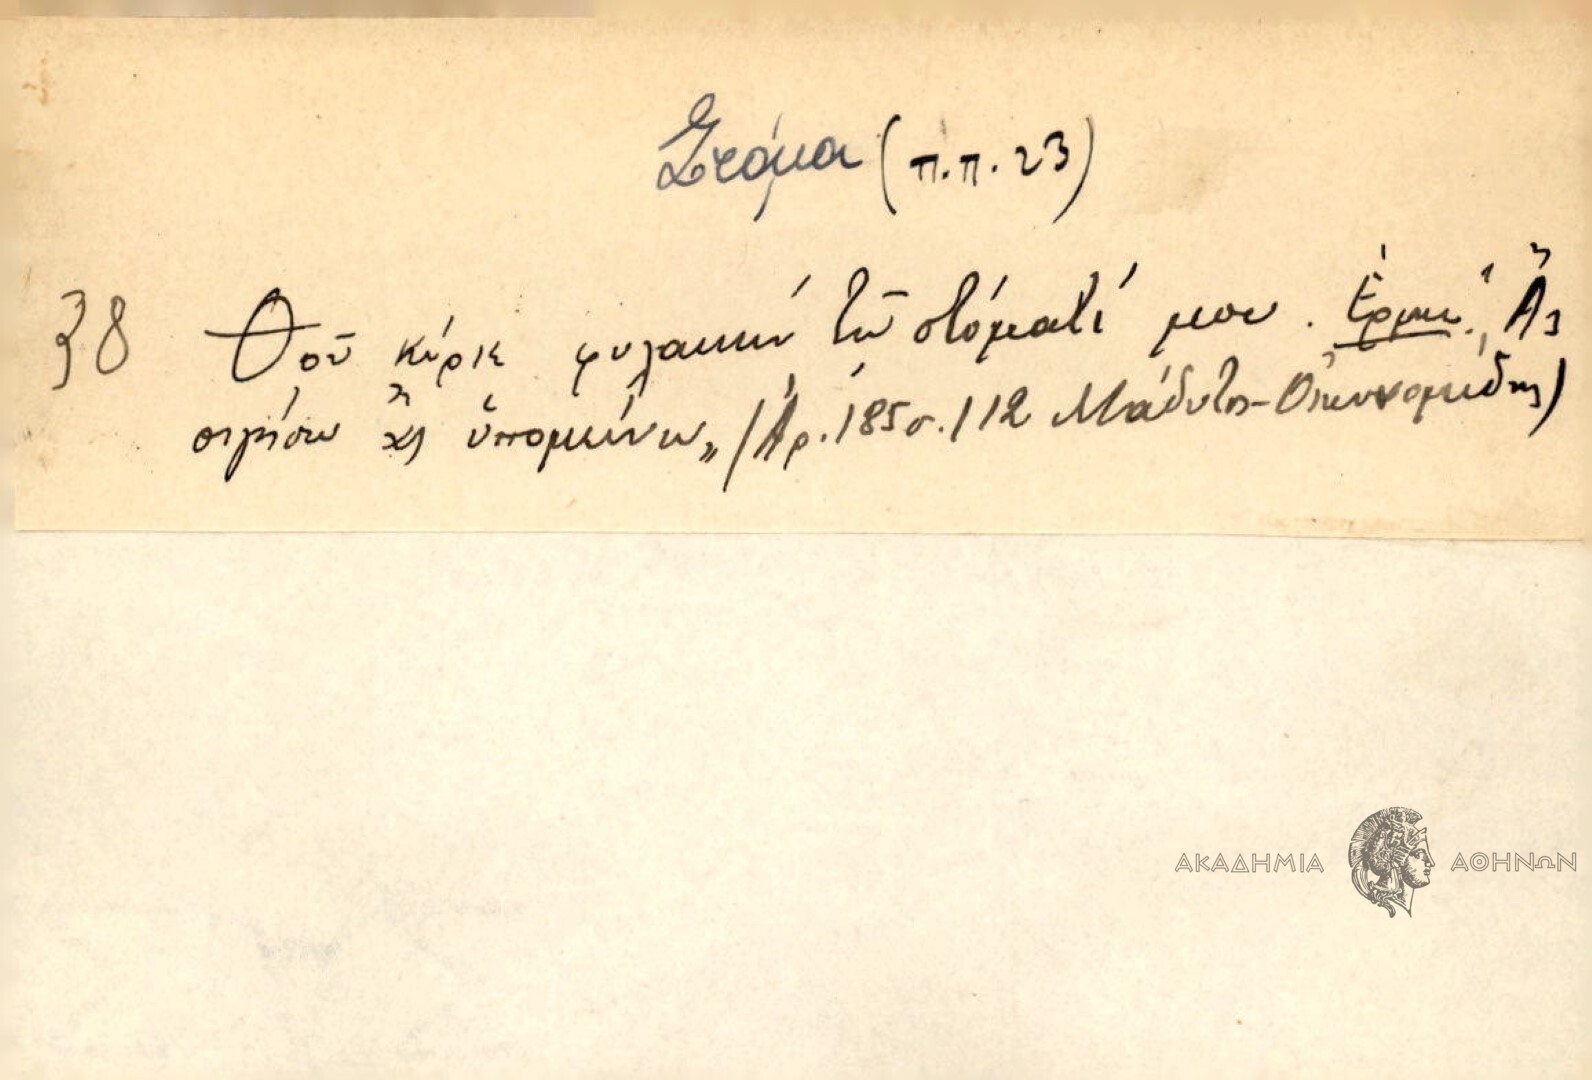 Στόμα (π.π. 23)
38 Θοῦ κύριε φυλακήν τῶ στόματί μου. Ἑρμ. "Ἄς
σιγήσω κ ὑπομείνω„ (Ἀρ. 185 σ. 112 Μάδυτος - Οἰκονομίδης)
ΑΚΑΔΗΜΙΑ ΑΘΗΝΩΝ